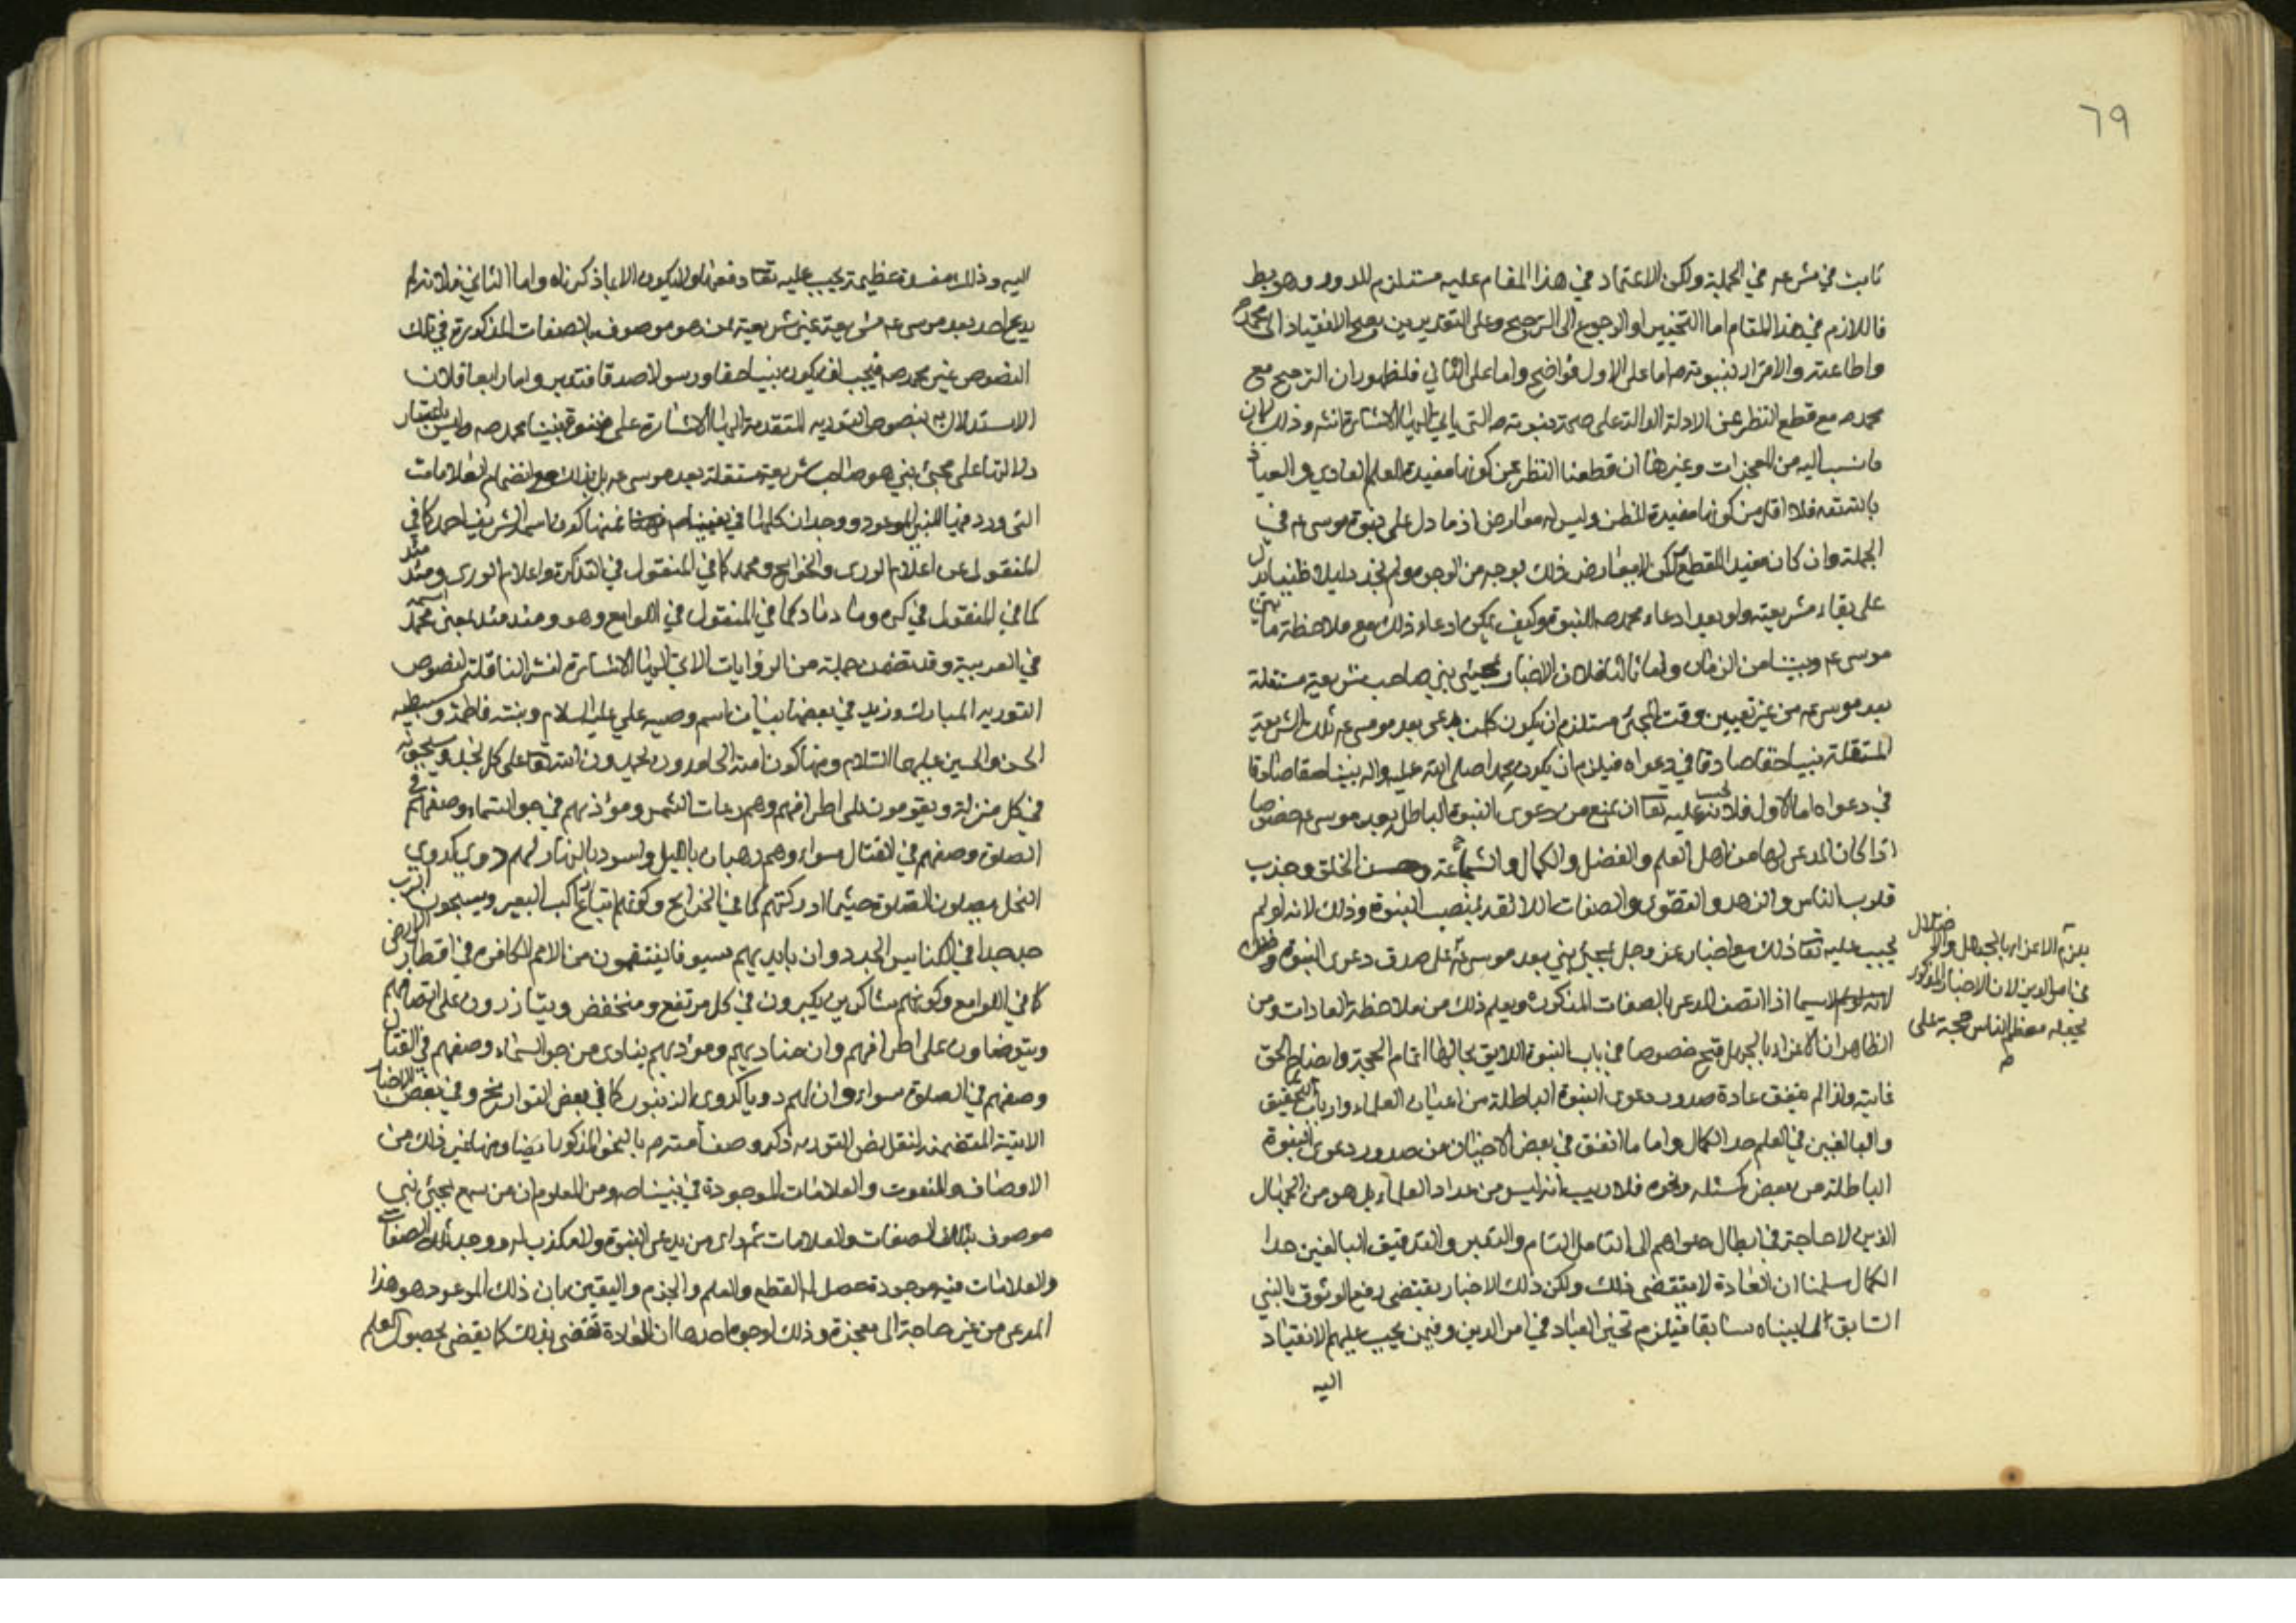 ٦٩
ثابت في شرعه في الجملة ولكن الاعتماد في هذا المقام عليه مستلزم للدور وهو بط
فاللازم في هذا المقام اما التخيير او الرجوع الى الترجيح وعلى التقديرين يصح الانقياد الى محمد ص
واطاعته والاقرار بنبوته ص اما على الاول فواضح واما على الثاني فلظهور ان الترجيح مع
محمد ص مع قطع النظر عن الادلة الدالة على صحة نبوته ص التي ياتي اليها الاشارة انش وذلك لان
ما نسب اليه من المعجزات وغيرها ان قطعنا النظر عن كونها مفيدة للعلم العادي والعياذ
بالله تعه فلا اقل من كونها مفيدة للظن وليس له معارض اذ ما دل على نبوة موسى ع في
الجملة وان كان مفيدا للقطع لكن لا يعارض ذلك بوجه من الوجوه ولم نجد دليلا ظنيا يدل
على بقاء شريعته ولو بعد ادعاء محمد ص النبوة وكيف يمكن ادعاء ذلك مع ملاحظة ما بين
موسى ع وبيننا من الزمان واما ثالثا فلان الاخبار بمجيئ نبي صاحب شريعة مستقلة
بعد موسى ع من غير تعيين وقت المجئ مستلزم ان يكون كل من يدعى بعد موسى ع تلك الشريعة
المستقلة نبيا حقا صادقا في دعواه فيلزم ان يكون محمدا صلى الله عليه واله نبيا حقا صادقا
في دعواه اما الاول فلانه يجب عليه تعا ان يمنع من دعوى النبوة الباطل بعد موسى ع خصوصا
اذا كان المدعى لها من اهل العلم والفضل والكمال والشجاعة وحسن الخلق وجذب
قلوب الناس والزهد والتقوى والصفات اللائقة لمنصب النبوة وذلك لانه لو لم
يجب عليه تعا ذلك مع اخباره عز وجل بمجئ نبي بعد موسى ع على صدق دعوى النبوة وذلك
لاسيما اذا اتصف المدعى بالصفات المذكورة ويعلم ذلك من ملاحظة العادات ومن
الظاهر ان الاغراء بالجهل قبيح خصوصا في باب النبوة اللايق بحالها اتمام الحجة وايضاح الحق
غايته ولذا لم يتفق عادة صدور دعوى النبوة الباطلة من اعيان العلماء وارباب التحقيق
والبالغين في العلم حد الكمال واما ما اتفق في بعض الاحيان من صدور دعوى النبوة
الباطلة من بعض ونحوه فلا ريب انه ليس من عداد العلماء بل هو من الجهال
الذين لا حاجة في ابطال دعواهم الى التامل التام والتدبر والتدقيق البالغين حد
الكمال سلمنا ان العادة لا تقتضى ذلك ولكن ذلك الاخبار يقتضى رفع الوثوق بالنبي
السابق لما بيناه سابقا فيلزم تحير العباد في امر الدين وفيمن يجب عليهم الانقياد
اليه
يلزم الاغراء بالجهل والاضلال
في اصل الدين لان الاخبار المذكور
يجعله معظم الناس حجة على
اليه وذلك مفسدة عظيمة يجب عليه تعا دفعها ولا يكون الا بما ذكرناه واما الثاني فلانه لم
يدع احد بعد موسى ع شريعة غير شريعته ممن هو موصوف بالصفات المذكورة في تلك
النصوص غير محمد ص فيجب ان يكون نبيا حقا ورسولا صدقا فتدبر واما رابعا فلان
الاستدلال بنصوص التورية المتقدمة اليها الاشارة على نبوة نبينا محمد ص وليس باعتبار
دلالتها على مجيئ نبي هو صاحب شريعة مستقلة بعد موسى ع بل بذلك مع انضمام العلامات
التي ورد فيها للنبي الموعود ووجدان كلها في نبينا ص فمنها كون اسمه الشريف احمد كما في
المنقول عن اعلام الورى والخرايج ومحمد كما في المنقول في التذكرة واعلام الورى وميذ ميذ
كما في المنقول في كرم وماد ماد كما في المنقول في اللوامع وهو وميذ ميذ بمعنى اسمه محمد
في العربية وقد تضمن جملة من الروايات الاتي اليها الاشارة انش الناقلة لنصوص
التورية المباركة وزيد في بعضها بيان اسم وصيه علي عليه السلام وبنته فاطمة وسبطيه
الحسن والحسين عليهما السلام ومنها كون امته الحامدون يحمدون الله تعا على كل نجد ويسبحونه
في كل منزلة ويقومون على اطرافهم وهم رعات الشمس ومؤذنهم في جو السماء وصفهم في
الصلوة وصفهم في القتال سواء وهم رهبان بالليل واسود بالنهار لهم دوى كدوى
النحل يصلون الصلوة حيثما ادركتهم كما في الخرايج وكونهم اتباع راكب البعير ويسبحون الرب
جدا جدا في الكنايس الجدد وان بايديهم سيوفا ينتقمون من الامم الكافرة في اقطار الارض
كما في اللوامع وكونهم شاكرين يكبرون في كل مرتفع ومنخفض ويتازرون على انصافهم
ويتوضاون على اطرافهم وان مناديهم ومؤذنهم ينادى من جو السماء وصفهم في القتال
وصفهم في الصلوة سواء وان لهم دويا كدوى الزنبور كما في بعض التواريخ وفي بعض الاخبار
الاتية المتضمنة لنقل نص التورية ذكر وصف امته ص بالنحو المذكور ايضا ومنها غير ذلك من
الاوصاف والنعوت والعلامات الموجودة في نبينا ص ومن المعلوم ان من سمع بمجئ نبي
موصوف بتلك الصفات والعلامات ثم راى من يدعى النبوة ولم يكذب له ووجد تلك الصفات
والعلامات فيه موجودة حصل له القطع والعلم والجزم واليقين بان ذلك الموعود هو هذا
المدعى من غير حاجة الى معجزة وذلك لوجوه احدها ان العادة تقضى بذلك كما يقضى بحصول العلم